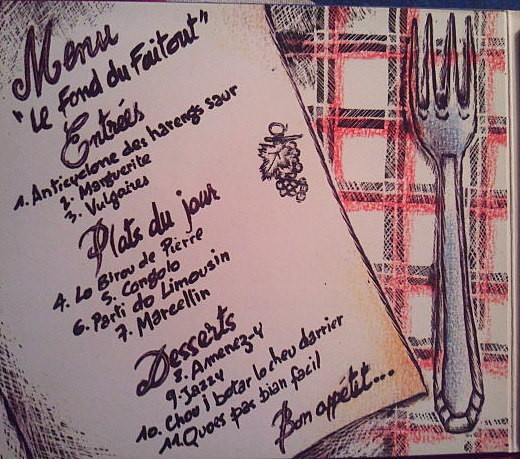 Menu
"Le Fond du Faitout"
Entrées
1. Anticyclone des harengs saur
2. Marguerite
3. Vulgaires
Plats du jour
4. Lo Birou de Pierre
5. Congolo
6. Parti do Limousin
7. Marcellin
Desserts
8. Amenez-y
9. Jazzy
10. Chou j botar lo cheu darrier
11. Quoes pas bian facil
Bon appétit...